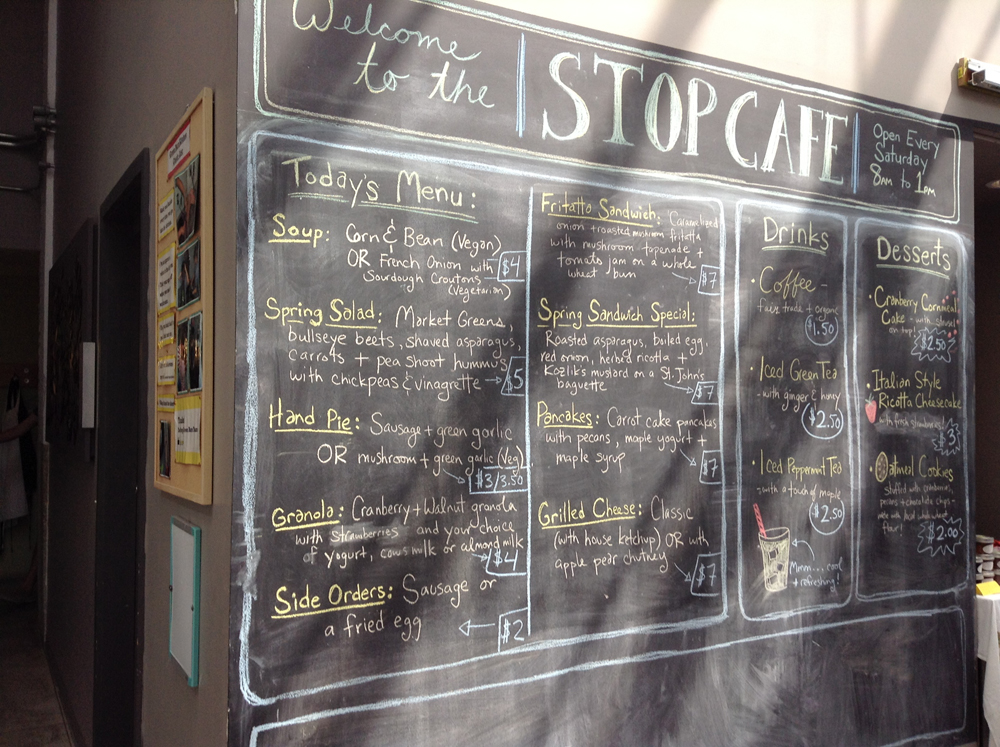 Welcome
to the
STOP CAFE
Open Every
Saturday
8AM to 1PM
Today's Menu:
Soup: Corn & Bean (Vegan)
OR French Onion with
Sourdough Croutons
(Vegetarian)
$4
Spring Salad: Market Greens,
bullseye beets, shaved asparagus,
carrots + pea shoot hummus
with chickpeas & vinagrette
$5
Hand Pie: Sausage + green garlic
OR mushroom + green garlic (Veg)
$3/3.50
Granola: Cranberry + Walnut granola
with strawberries and your choice
of yogurt, cows milk or almond milk
$4
Side Orders: Sausage or
a fried egg
$2
Fritatta Sandwich: Caramelized
onion + roasted mushroom fritatta
with mushroom tapenade +
tomato jam on a whole
wheat bun
$7
Spring Sandwich Special:
Roasted asparagus, boiled egg,
red onion, herbed ricotta +
Kozlik's mustard on a St. John's
baguette
$7
Pancakes: Carrot cake pancakes
with pecans, maple yogurt +
maple syrup
$7
Grilled Cheese: Classic
(with house ketchup) OR with
apple pear chutney
$7
Drinks
• Coffee -
fair trade + organic
$1.50
• Iced Green Tea
- with ginger & honey
$2.50
• Iced Peppermint Tea
- with a touch of maple
$2.50
Mmm... cool
+ refreshing!
Desserts
• Cranberry Cornmeal
Cake - with
on top!
$2.50
• Italian Style
Ricotta Cheesecake
with fresh strawberries
$3
• Oatmeal Cookies
Stuffed with cranberries,
pecans + chocolate chips -
made with
flour!
$2.00